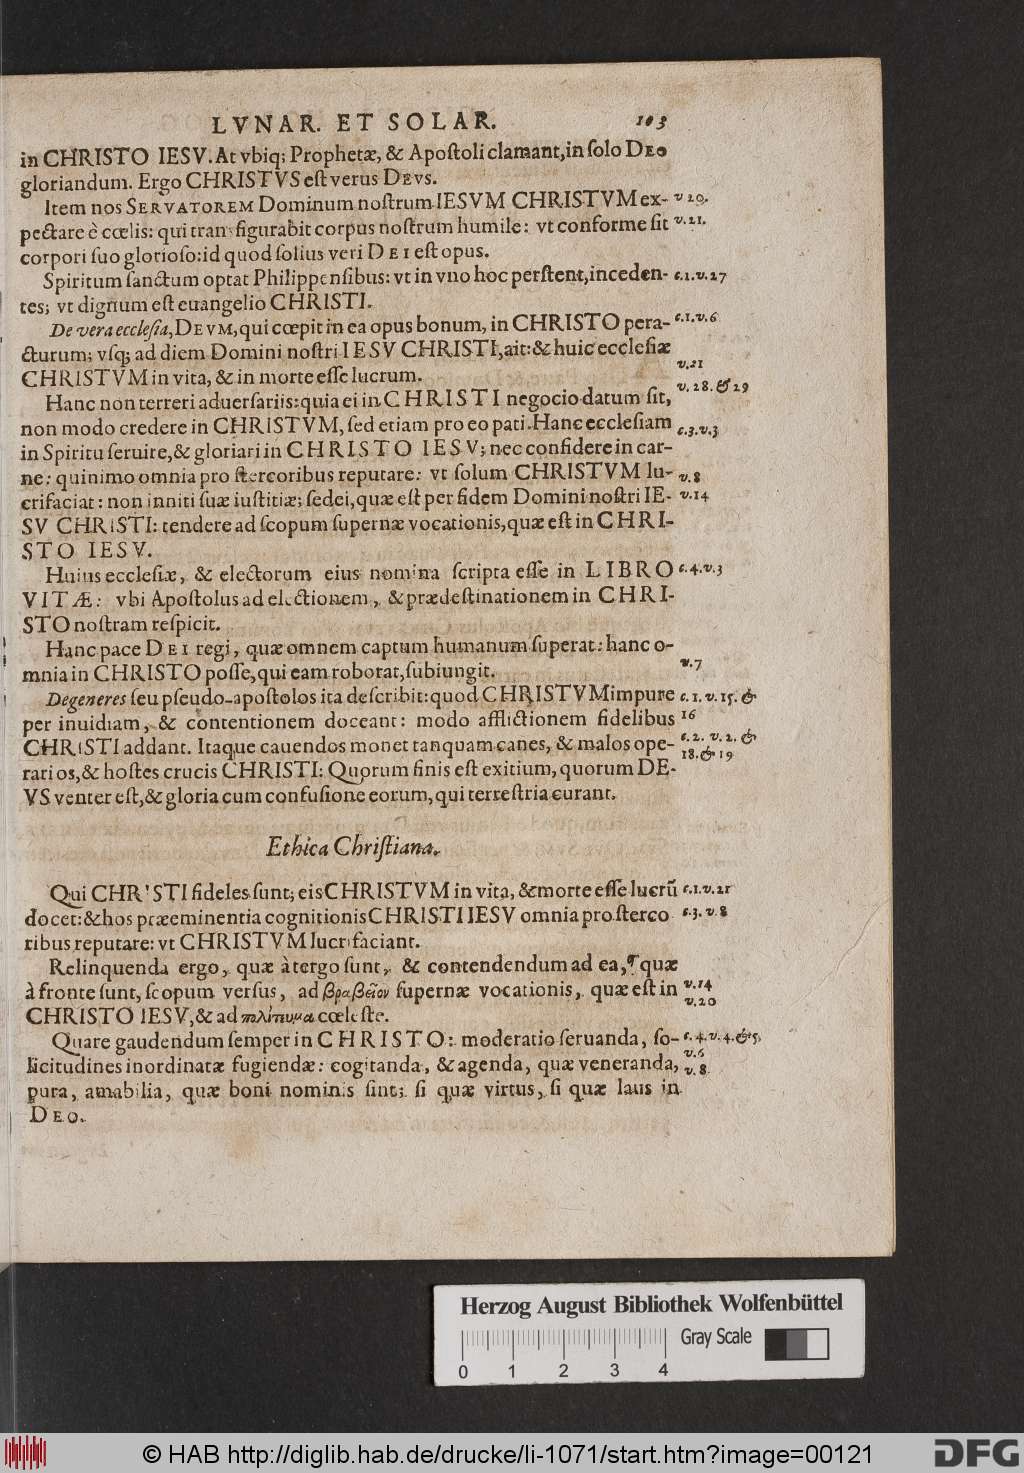 LVNAR. ET SOLAR. 103
in CHRISTO IESV. At vbiq; Prophetæ, & Apoſtoli clamant, in ſolo DEO
gloriandum. Ergo CHRISTVS eſt verus DEVS.
Item nos SERVATOREM Dominum noſtrum IESVM CHRISTVM ex- v 20.
pectare è cœlis: qui transfigurabit corpus noſtrum humile: vt conforme ſit v. 21.
corpori ſuo glorioſo: id quod ſolius veri DEI eſt opus.
Spiritum ſanctum optat Philippenſibus: vt in vno hoc perſtent, inceden- c. 1. v. 27
tes; vt dignum eſt euangelio CHRISTI.
De vera eccleſia, DEVM, qui cœpit in ea opus bonum, in CHRISTO pera- c. 1. v. 6
cturum; vſq; ad diem Domini noſtri IESV CHRISTI, ait: & huic eccleſiæ
CHRISTVM in vita, & in morte eſſe lucrum. v. 21
Hanc non terreri aduerſariis: quia ei in CHRISTI negocio datum ſit, v. 28. & 29
non modo credere in CHRISTVM, ſed etiam pro eo pati. Hanc eccleſiam c. 3. v. 3
in Spiritu ſeruire, & gloriari in CHRISTO IESV; nec confidere in car-
ne: quinimo omnia pro ſtercoribus reputare: vt ſolum CHRISTVM lu- v. 8
crifaciat: non inniti ſuæ iuſtitiæ; ſed ei, quæ eſt per fidem Domini noſtri IE- v. 14
SV CHRISTI: tendere ad ſcopum ſupernæ vocationis, quæ eſt in CHRI-
STO IESV.
Huius eccleſiæ, & electorum eius nomina ſcripta eſſe in LIBRO c. 4. v. 3
VITÆ: vbi Apoſtolus ad electionem, & prædeſtinationem in CHRI-
STO noſtram reſpicit.
Hanc pace DEI regi, quæ omnem captum humanum ſuperat: hanc o-
mnia in CHRISTO poſſe, qui eam roborat, ſubiungit. v. 7
Degeneres ſeu pſeudo-apoſtolos ita deſcribit: quod CHRISTVM impure c. 1. v. 15. &
per inuidiam, & contentionem doceant: modo afflictionem fidelibus 16
CHRISTI addant. Itaque cauendos monet tanquam canes, & malos ope- c. 2. v. 2. &
rarios, & hoſtes crucis CHRISTI: Quorum finis eſt exitium, quorum DE- 18. & 19
VS venter eſt, & gloria cum confuſione eorum, qui terreſtria curant.
Ethica Chriſtiana.
Qui CHRISTI fideles ſunt; eis CHRISTVM in vita, & morte eſſe lucrũ c. 1. v. 21
docet: & hos præeminentia cognitionis CHRISTI IESV omnia pro ſterco c. 3. v. 8
ribus reputare: vt CHRISTVM lucrifaciant.
Relinquenda ergo, quæ à tergo ſunt, & contendendum ad ea, quæ
à fronte ſunt, ſcopum verſus, ad βραβεῖον ſupernæ vocationis, quæ eſt in v. 14
CHRISTO IESV, & ad πολίτευμα cœleſte. v. 20
Quare gaudendum ſemper in CHRISTO: moderatio ſeruanda, ſo- c. 4. v. 4. & 5.
licitudines inordinatæ fugiendæ: cogitanda, & agenda, quæ veneranda, v. 6
pura, amabilia, quæ boni nominis ſint; ſi quæ virtus, ſi quæ laus in v. 8.
DEO.
Herzog August Bibliothek Wolfenbüttel
Gray Scale
0 1 2 3 4
© HAB http://diglib.hab.de/drucke/li-1071/start.htm?image=00121
DFG